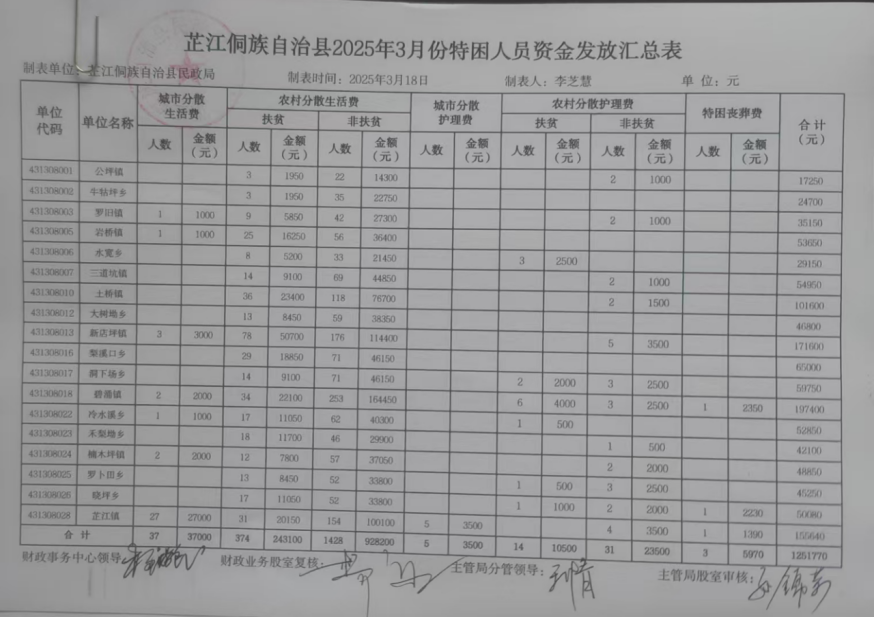 芷江侗族自治县2025年3月份特困人员资金发放汇总表
制表单位：芷江侗族自治县民政局 制表时间：2025年3月18日 制表人：李芝慧 单 位：元
单位代码 单位名称 城市分散生活费 农村分散生活费 城市分散护理费 农村分散护理费 特困丧葬费 合计（元）
扶贫 非扶贫 扶贫 非扶贫
人数 金额（元） 人数 金额（元） 人数 金额（元） 人数 金额（元） 人数 金额（元） 人数 金额（元） 人数 金额（元）
431308001 公坪镇 3 1950 22 14300 2 1000 17250
431308002 牛牯坪乡 3 1950 35 22750 24700
431308003 罗旧镇 1 1000 9 5850 42 27300 2 1000 35150
431308005 岩桥镇 1 1000 25 16250 56 36400 53650
431308006 水宽乡 8 5200 33 21450 3 2500 29150
431308007 三道坑镇 14 9100 69 44850 2 1000 54950
431308010 土桥镇 36 23400 118 76700 2 1500 101600
431308012 大树坳乡 13 8450 59 38350 46800
431308013 新店坪镇 3 3000 78 50700 176 114400 5 3500 171600
431308016 梨溪口乡 29 18850 71 46150 65000
431308017 洞下场乡 14 9100 71 46150 2 2000 3 2500 59750
431308018 碧涌镇 2 2000 34 22100 253 164450 6 4000 3 2500 1 2350 197400
431308022 冷水溪乡 1 1000 17 11050 62 40300 1 500 52850
431308023 禾梨坳乡 18 11700 46 29900 1 500 42100
431308024 楠木坪镇 2 2000 12 7800 57 37050 2 2000 48850
431308025 罗卜田乡 13 8450 52 33800 1 500 3 2500 45250
431308026 晓坪乡 17 11050 52 33800 1 1000 2 2000 1 2230 50080
431308028 芷江镇 27 27000 31 20150 154 100100 5 3500 4 3500 1 1390 155640
合 计 37 37000 374 243100 1428 928200 5 3500 14 10500 31 23500 3 5970 1251770
财政事务中心领导： 财政业务股室复核： 主管局分管领导： 主管局股室审核：